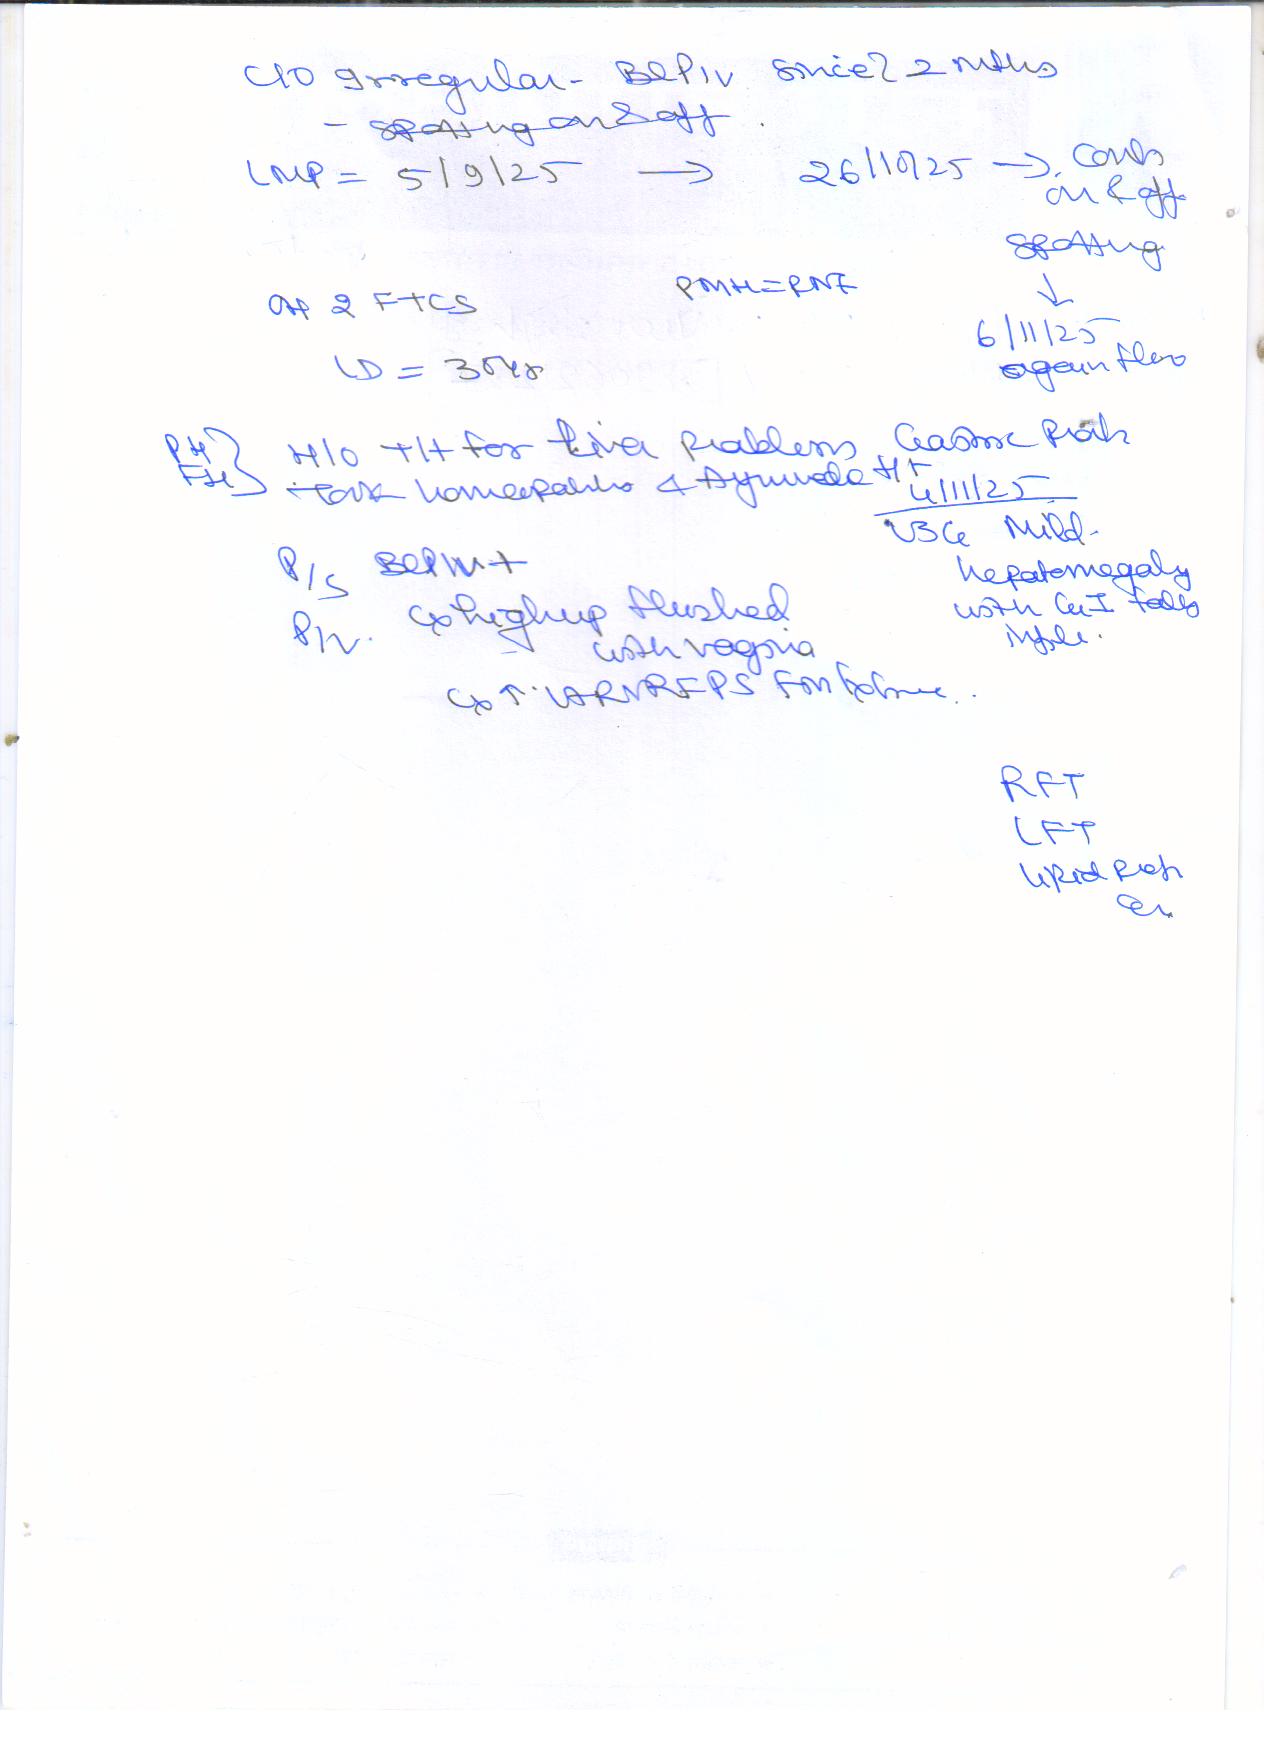 C/O Irregular - Bl P/V since 2 mths
- spotting on & off.
LMP = 5/9/25 → 26/10/25 → Contn
on & off
spotting
↓
6/11/25
again flow
PMH = RNF
OH 2 FTCS
LD = 30yr
PH
FH } H/O T/t for liver problems Gastric Prob
took homeopathic & Ayurveda t/t
4/11/25
USG Mild
hepatomegaly
with Gr I fatty
P/S Bl P/V +
P/V. Cx high up flushed
with vagina
Cx ↑ UARNRFPS
RFT
LFT
lipid Prof